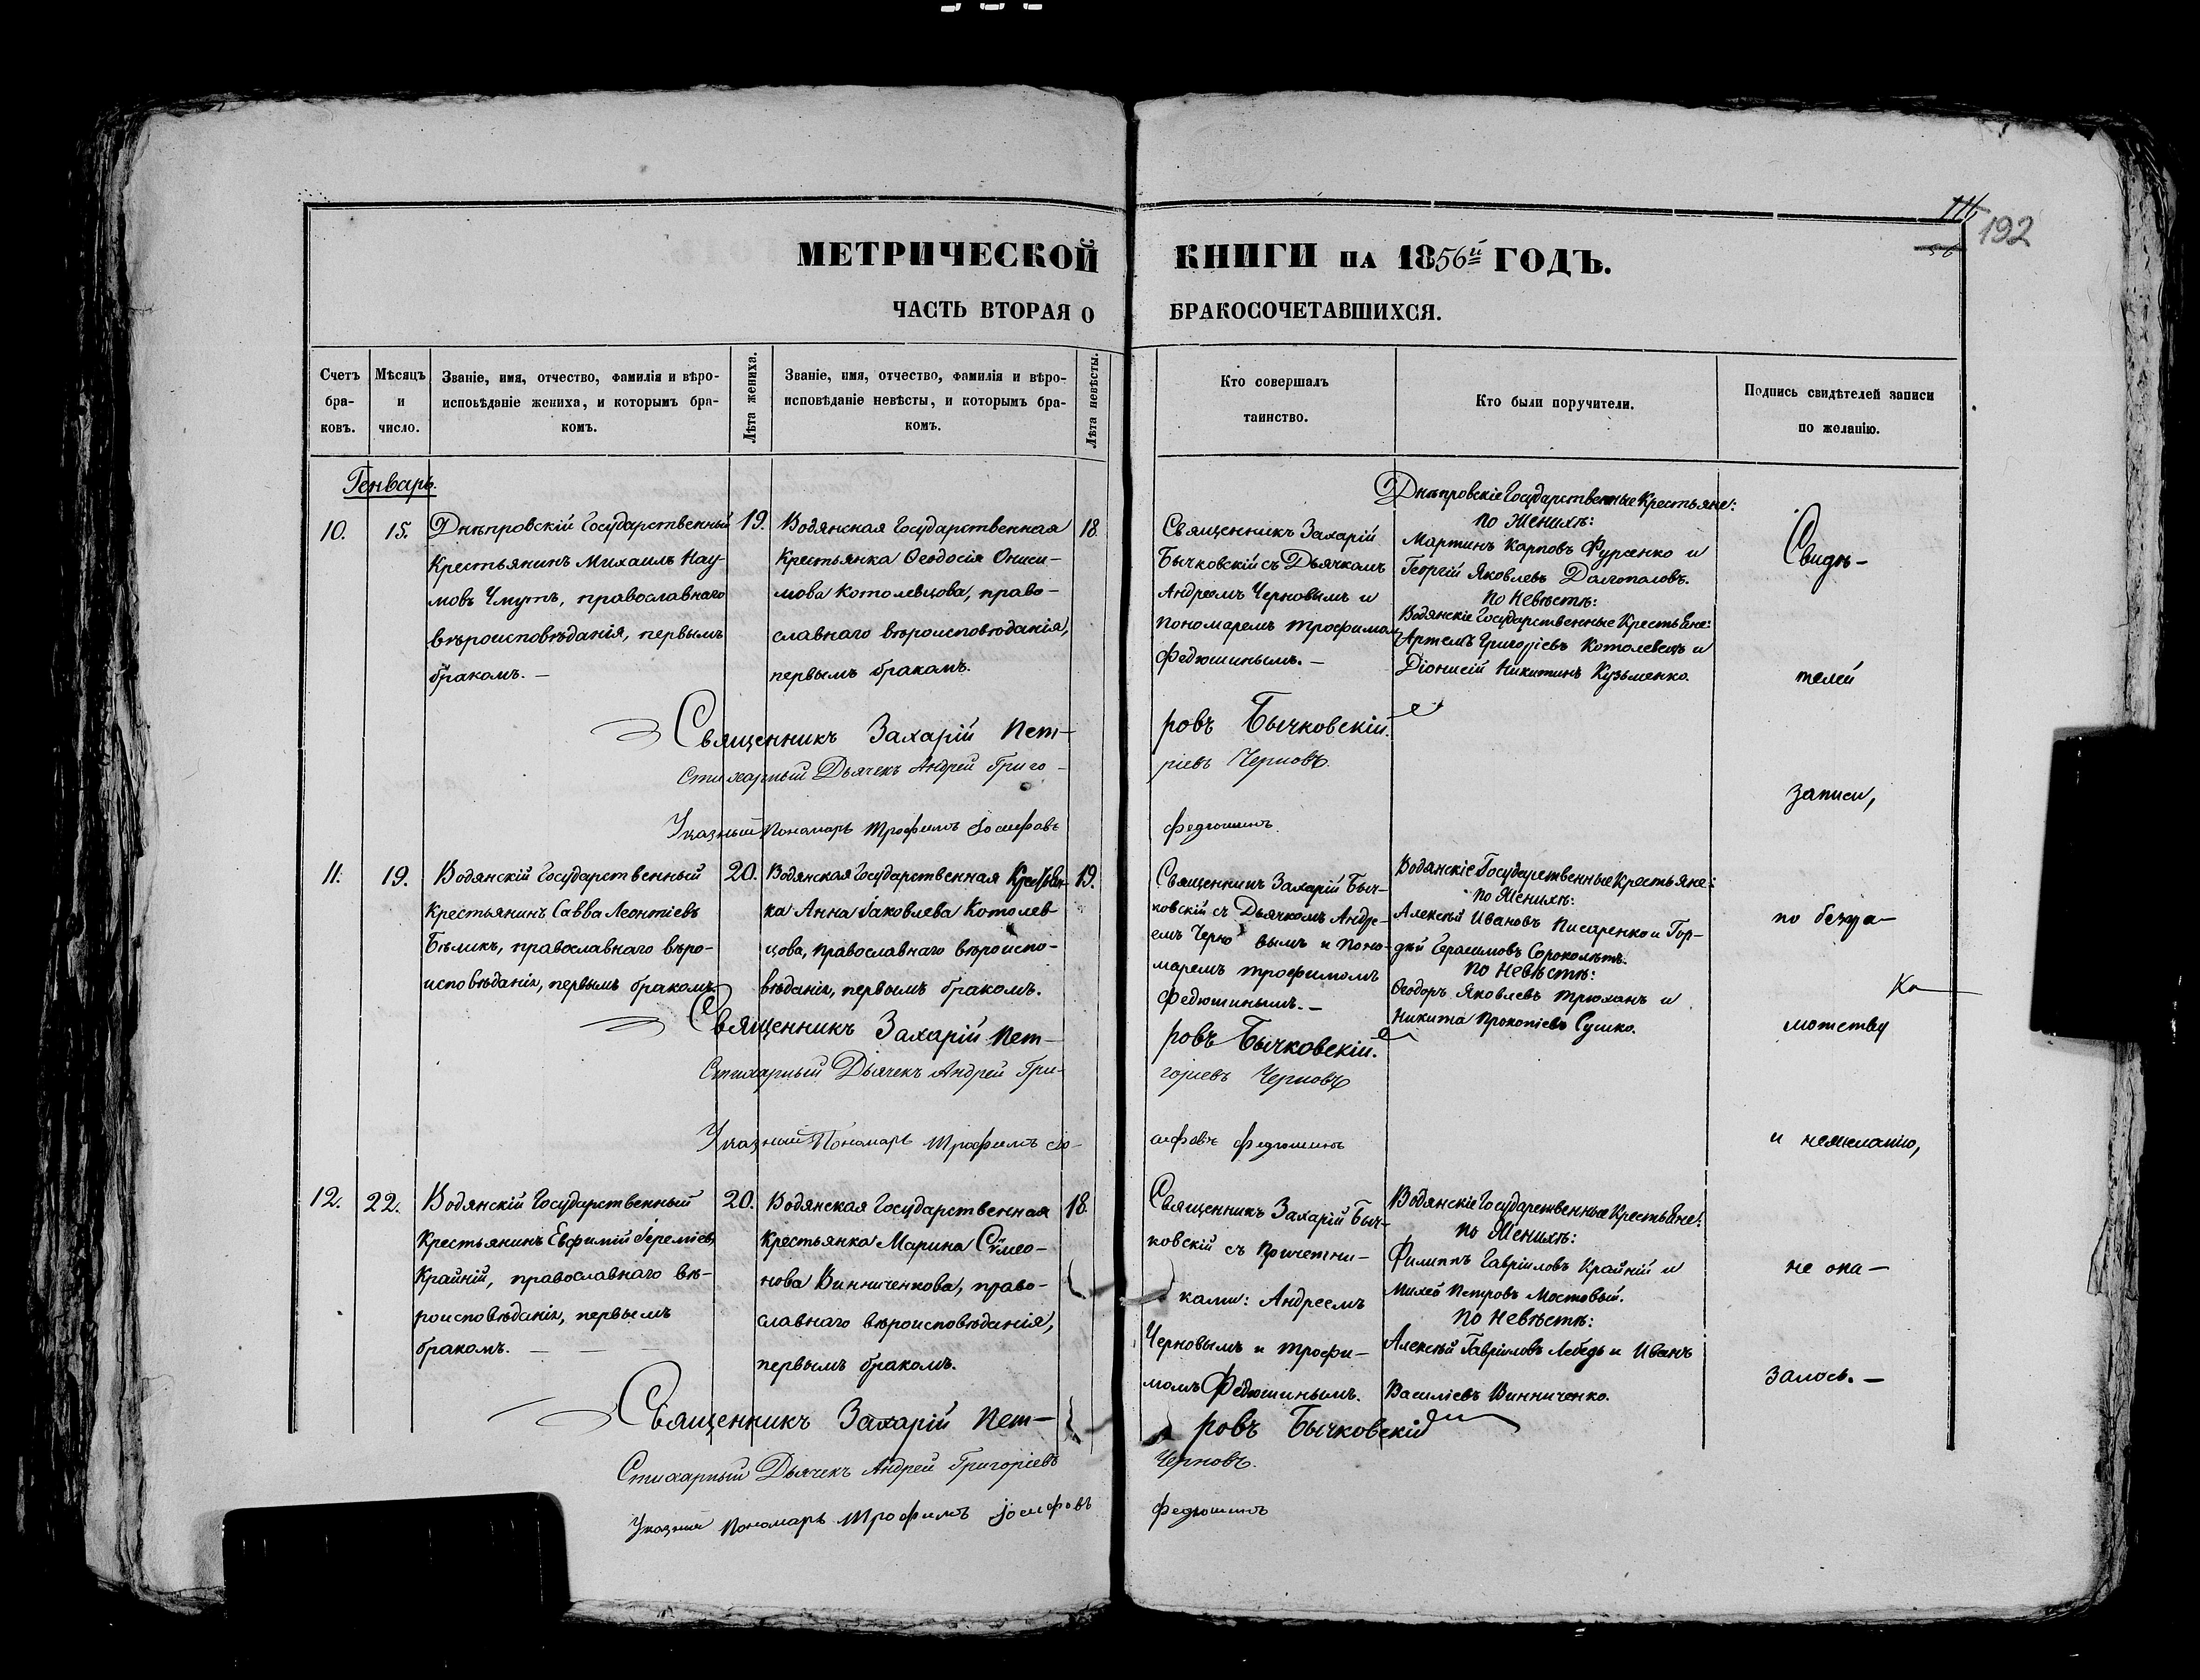 116
192
МЕТРИЧЕСКОЙ КНИГИ НА 1856й ГОДЪ.
ЧАСТЬ ВТОРАЯ О БРАКОСОЧЕТАВШИХСЯ.
Счетъ
бра-
ковъ.
Мѣсяцъ
и
число.
Званіе, имя, отчество, фамилія и вѣро-
исповѣданіе жениха, и которымъ бра-
комъ.
Лѣта жениха.
Званіе, имя, отчество, фамилія и вѣро-
исповѣданіе невѣсты, и которымъ бра-
комъ.
Лѣта невѣсты.
Кто совершалъ
таинство.
Кто были поручители.
Подпись свидѣтелей записи
по желанію.
Генварь.
10.
15.
Днѣпровскій Государственный
Крестьянинъ Михаилъ Нау-
мовъ Чмутъ, православнаго
вѣроисповѣданія, первымъ
бракомъ. —
19.
Водянская Государственная
Крестьянка Ѳеодосія Ониси-
мова Котолевцова, право-
славнаго вѣроисповѣданія,
первымъ бракомъ.
18
Священникъ Захарій
Бычковскій съ Дьячкомъ
Андреемъ Черновымъ и
пономаремъ Трофимомъ
Федюшинымъ. —
Днѣпровскіе Государственные Крестьяне:
по Женихѣ:
Мартинъ Карповъ Фурсенко и
Георгій Яковлевъ Долгополовъ.
По Невѣстѣ:
Водянскіе Государственные Крестьяне:
Артемъ Григоріевъ Котолевецъ и
Діонисій Никитинъ Кузьменко.
Священникъ Захарій Пет-
ровъ Бычковскій.
Стихарный Дьячекъ Андрей Григо-
ріевъ Черновъ.
Указный Пономарь Трофимъ Іосифовъ
Федюшинъ.
11.
19.
Водянскій Государственный
Крестьянинъ Савва Леонтіевъ
Бѣликъ, православнаго вѣро-
исповѣданія, первымъ бракомъ.
20.
Водянская Государственная Крестьян-
ка Анна Іаковлева Котолев-
цова, православнаго вѣроиспо-
вѣданія, первымъ бракомъ.
19.
Священникъ Захарій Быч-
ковскій съ Дьячкомъ Андре-
емъ Черновымъ и Поно-
маремъ Трофимомъ
Федюшинымъ. —
Водянскіе Государственные Крестьяне:
по Женихѣ:
Алексѣй Ивановъ Писаренко и Гор-
дѣй Герасимовъ Сороколѣтъ.
По Невѣстѣ:
Ѳеодоръ Яковлевъ Трюханъ и
Никита Прокопіевъ Сушко.
Священникъ Захарій Пет-
ровъ Бычковскій.
Стихарный Дьячекъ Андрей Гри-
горіевъ Черновъ
Указный Пономарь Трофимъ Іо-
сифовъ Федюшинъ
12.
22.
Водянскій Государственный
Крестьянинъ Евфимій Іереміевъ
Крайній, православнаго вѣ-
роисповѣданія, первымъ
бракомъ. — — —
20.
Водянская Государственная
Крестьянка Марина Сѵмео-
нова Винниченкова, право-
славнаго вѣроисповѣданія,
первымъ бракомъ.
18.
Священникъ Захарій Быч-
ковскій съ Причетни-
ками: Андреемъ
Черновымъ и Трофи-
момъ Федюшинымъ.
Водянскіе Государственные Крестьяне:
по Женихѣ:
Филиппъ Гавріиловъ Крайній и
Михей Петровъ Мостовый.
По Невѣстѣ:
Алексѣй Гавріиловъ Лебедь и Иванъ
Василіевъ Винниченко.
Священникъ Захарій Пет-
ровъ Бычковскій
Стихарный Дьячекъ Андрей Григоріевъ
Черновъ.
Указный Пономарь Трофимъ Іосифовъ
Федюшинъ
Свидѣ-
телей
записи,
по безгра-
мотству
и нежеланію,
не ока-
залось. —
Ка